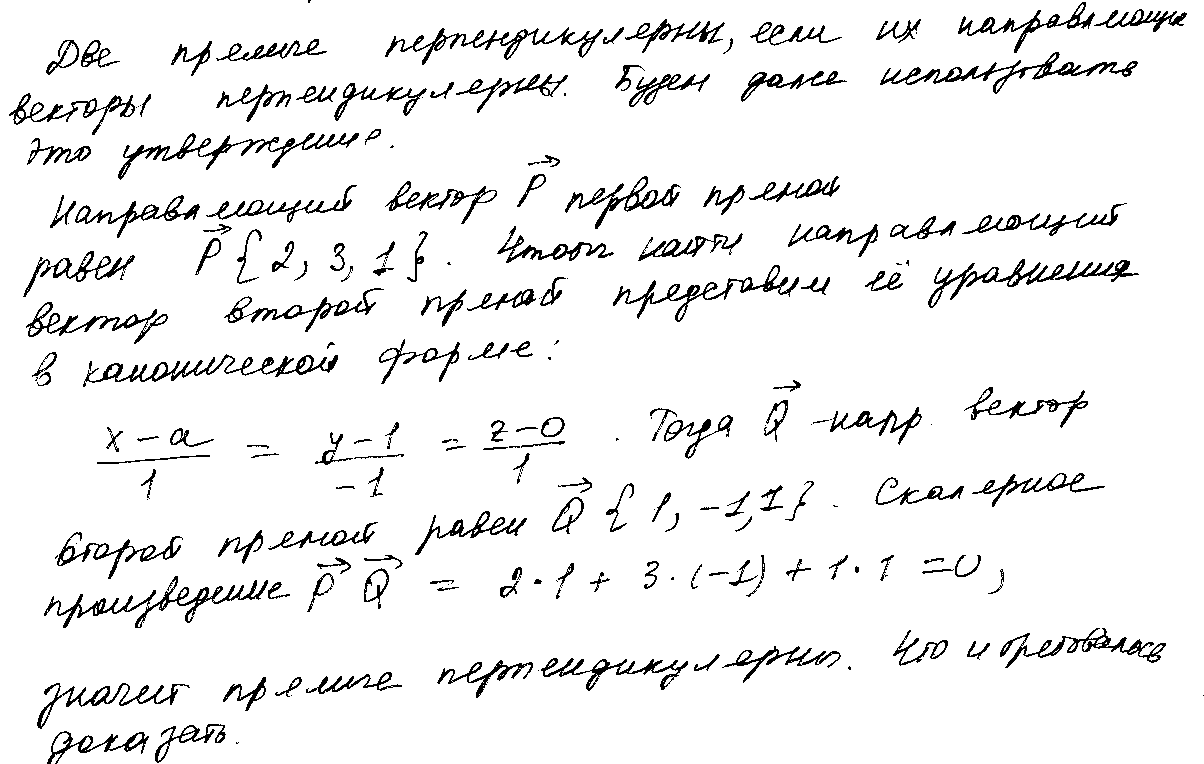 Две прямые перпендикулярны, если их направляющие
векторы перпендикулярны. Будем далее использовать
это утверждение.
Направляющий вектор P⃗ первой прямой
равен P⃗ {2, 3, 1}. Чтобы найти направляющий
вектор второй прямой представим её уравнения
в канонической форме:
(x - a)/1 = (y - 1)/(-1) = (z - 0)/1 . Тогда Q⃗ - напр. вектор
второй прямой равен Q⃗ {1, -1, 1}. Скалярное
произведение P⃗ Q⃗ = 2·1 + 3·(-1) + 1·1 = 0,
значит прямые перпендикулярны. Что и требовалось
доказать.